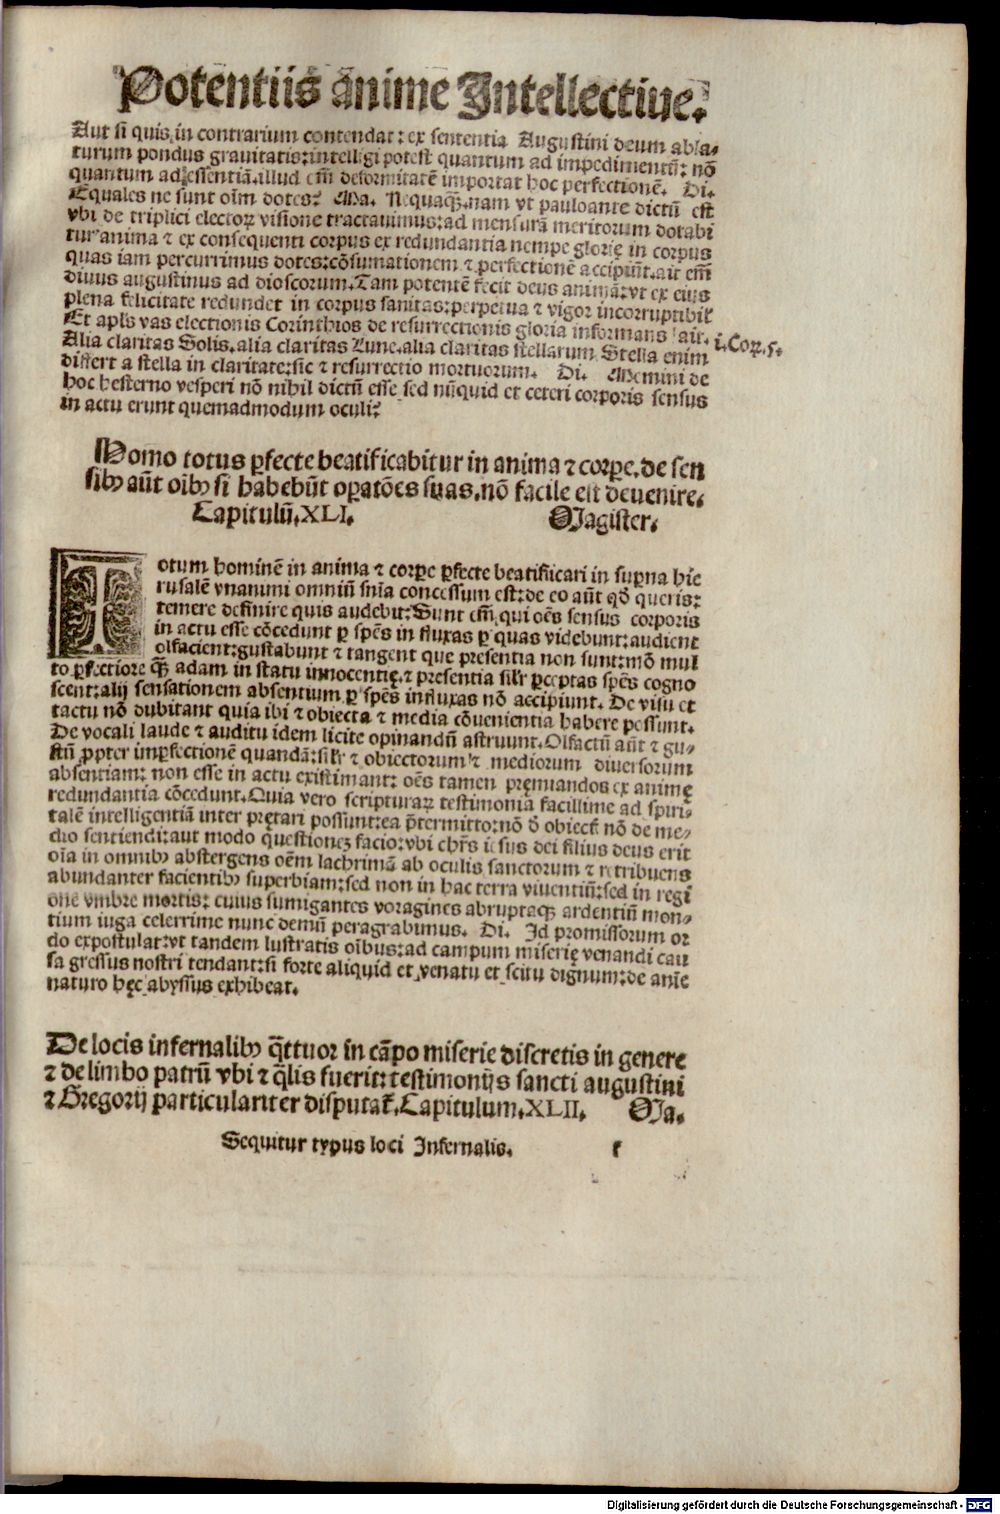 Potentiis anime Intellectiue.
Aut si quis in contrarium contendat: ex sententia Augustini deum abla-
turum pondus grauitatis: intelligi potest quantum ad impedimentū: nō
quantum ad essentiā. illud em̄ deformitatē importat hoc perfectionē. Di.
Equales ne sunt oīm dotes? Ma. Nequaqꝫ. nam vt pauloante dictū est
vbi de triplici electoꝝ visione tractauimus: ad mensurā meritorum dotabi
tur anima ⁊ ex consequenti corpus ex redundantia nempe glorię in corpus
quas iam percurrimus dotes: cōsumationem ⁊ perfectionē accipiūt. ait em̄
diuus augustinus ad dioscorum. Tam potentē fecit deus animā: vt ex eius
plena felicitate redundet in corpus sanitas: perpetua ⁊ vigor incorruptibil᷒
Et apl̄s vas electionis Corinthios de resurrectionis gloria informans ait.
Alia claritas Solis. alia claritas Lune. alia claritas stellarum. Stella enim
i. Coꝝ. 5.
differt a stella in claritate: sic ⁊ resurrectio mortuorum. Di. Memini de
hoc hesterno vesperi nō nihil dictū esse sed nūquid et ceteri corporis sensus
in actu erunt quemadmodum oculi?
Homo totus ꝑfecte beatificabitur in anima ⁊ corpe. de sen
sibꝰ aūt oībꝰ si habebūt oꝑatōes suas. nō facile est deuenire.
Capitulū. XLI. Magister.
Totum hominē in anima ⁊ corpe ꝑfecte beatificari in suꝑna hie
rusalē vnanimi omniū snīa concessum est: de eo aūt qđ queris:
temere definire quis audebit: Sunt em̄ qui oēs sensus corporis
in actu esse cōcedunt ꝑ spēs in fluxas ꝑ quas videbunt: audient
olfacient: gustabunt ⁊ tangent que presentia non sunt: mō mul
to ꝑfectiore qꝫ adam in statu innocentię. ⁊ presentia sil'r ꝑceptas spēs cogno
scent: alij sensationem absentium ꝑ spēs influxas nō accipiunt. De visu et
tactu nō dubitant quia ibi ⁊ obiecta ⁊ media cōuenientia habere possunt.
De vocali laude ⁊ auditu idem licite opinandū astruunt. Olfactū aūt ⁊ gu-
stū ꝓpter imꝑfectionē quandā: sil'r ⁊ obiectorum ⁊ mediorum diuersorum
absentiam: non esse in actu existimant: oēs tamen pręmiandos ex animę
redundantia cōcedunt. Quia vero scripturaꝝ testimonia facillime ad spiri-
talē intelligentiā inter pretari possunt: ea p̄termitto: nō đ obiect᷒ nō de me-
dio sentiendi: aut modo questioneꝫ facio: vbi chr̄s iesus dei filius deus erit
oīa in omnibꝰ abstergens oēm lachrimā ab oculis sanctorum ⁊ retribuens
abundanter facientibꝰ superbiam: sed non in hac terra viuentiū: sed in regi
one vmbre mortis: cuius fumigantes voragines abruptaqꝫ ardentiū mon-
tium iuga celerrime nunc demū peragrabimus. Di. Id promissorum or
do expostulat: vt tandem lustratis oībus: ad campum miserię venandi cau
sa gressus nostri tendant: si forte aliquid et venatu et scitu dignum: de anīe
naturo hęc abyssus exhibeat.
De locis infernalibꝰ q̄ttuor in cāpo miserie discretis in genere
⁊ de limbo patrū vbi ⁊ q̄lis fuerit: testimonijs sancti augustini
⁊ Gregorij particulariter disputat᷒. Capitulum. XLII. Ma.
Sequitur typus loci Infernalis. r
Digitalisierung gefördert durch die Deutsche Forschungsgemeinschaft - DFG